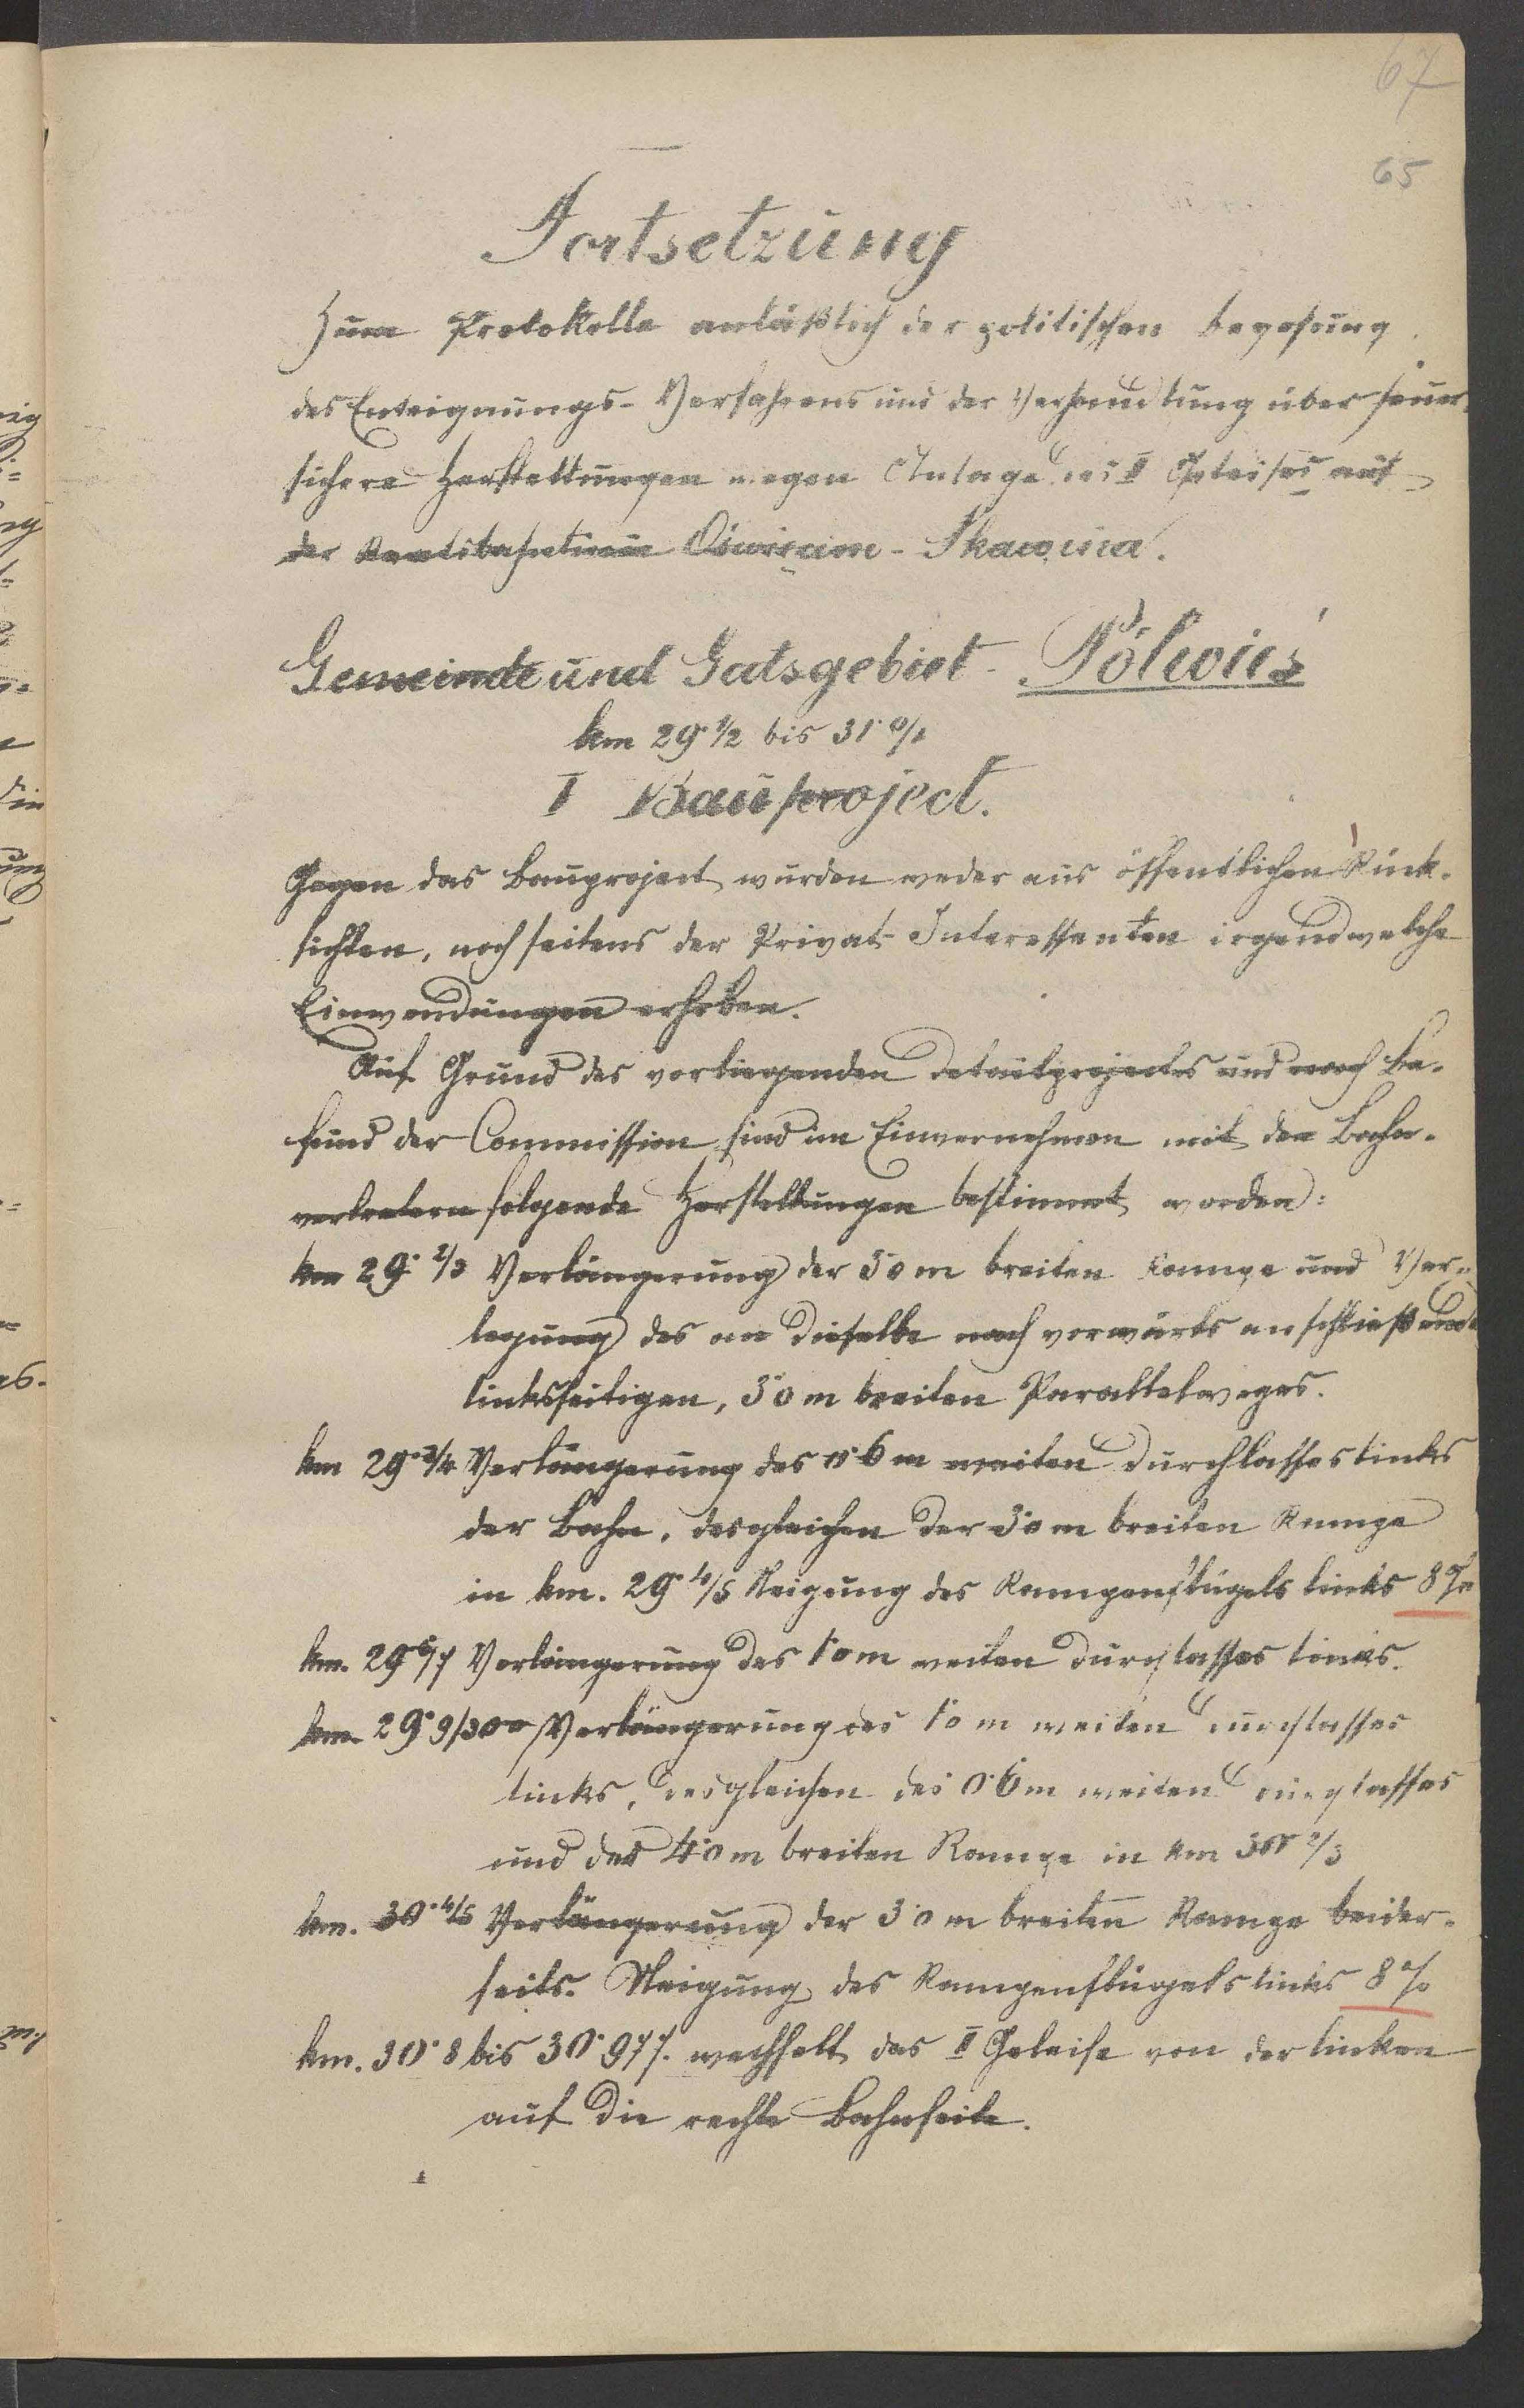 67
65
Fortsetzung
Zum Protokolle anläßlich der politischen Begehung
des Enteignungs-Verfahrens und der Verhandlung über feuer-
sichere Herstellungen wegen Anlage des II Geleises auf
der Staatsbahnlinie Oświęcim-Skawina.
Gemeinde und Gutsgebiet Półwieś
km 29·1/2 bis 31·0/1
I Bauproject.
Gegen das Bauproject wurden weder aus öffentlichen Rück-
sichten, noch seitens der Privat-Interessenten irgendwelche
Einwendungen erhoben.
Auf Grund des vorliegenden Detailprojectes und nach Be-
fund der Commission sind im Einvernehmen mit den Bahn-
vertretern folgende Herstellungen bestimmt worden:
km 29·2/3 Verlängerung der 3·0 m breiten Rampe und Ver-
legung des an dieselbe nach vorwärts anschließende
linksseitigen, 3·0 m breiten Parallelweges.
km 29·3/4 Verlängerung des 0·6 m weiten Durchlasses links
der Bahn, desgleichen der 3·0 m breiten Rampe
in km. 29·4/5 Neigung des Rampenflügels links 8%
km. 29·6/7 Verlängerung des 1·0 m weiten Durchlasses links.
km. 29·9/30·0 Verlängerung des 1·0 m weiten Durchlasses
links, desgleichen des 0·6 m weiten Durchlasses
und der 4·0 m breiten Rampe in km 30·2/3
km. 30·4/5 Verlängerung der 3·0 m breiten Rampe beider-
seits. Neigung des Rampenflügels links 8%
km. 30·8 bis 30·977. wechselt das II Geleise von der linken
auf die rechte Bahnseite.